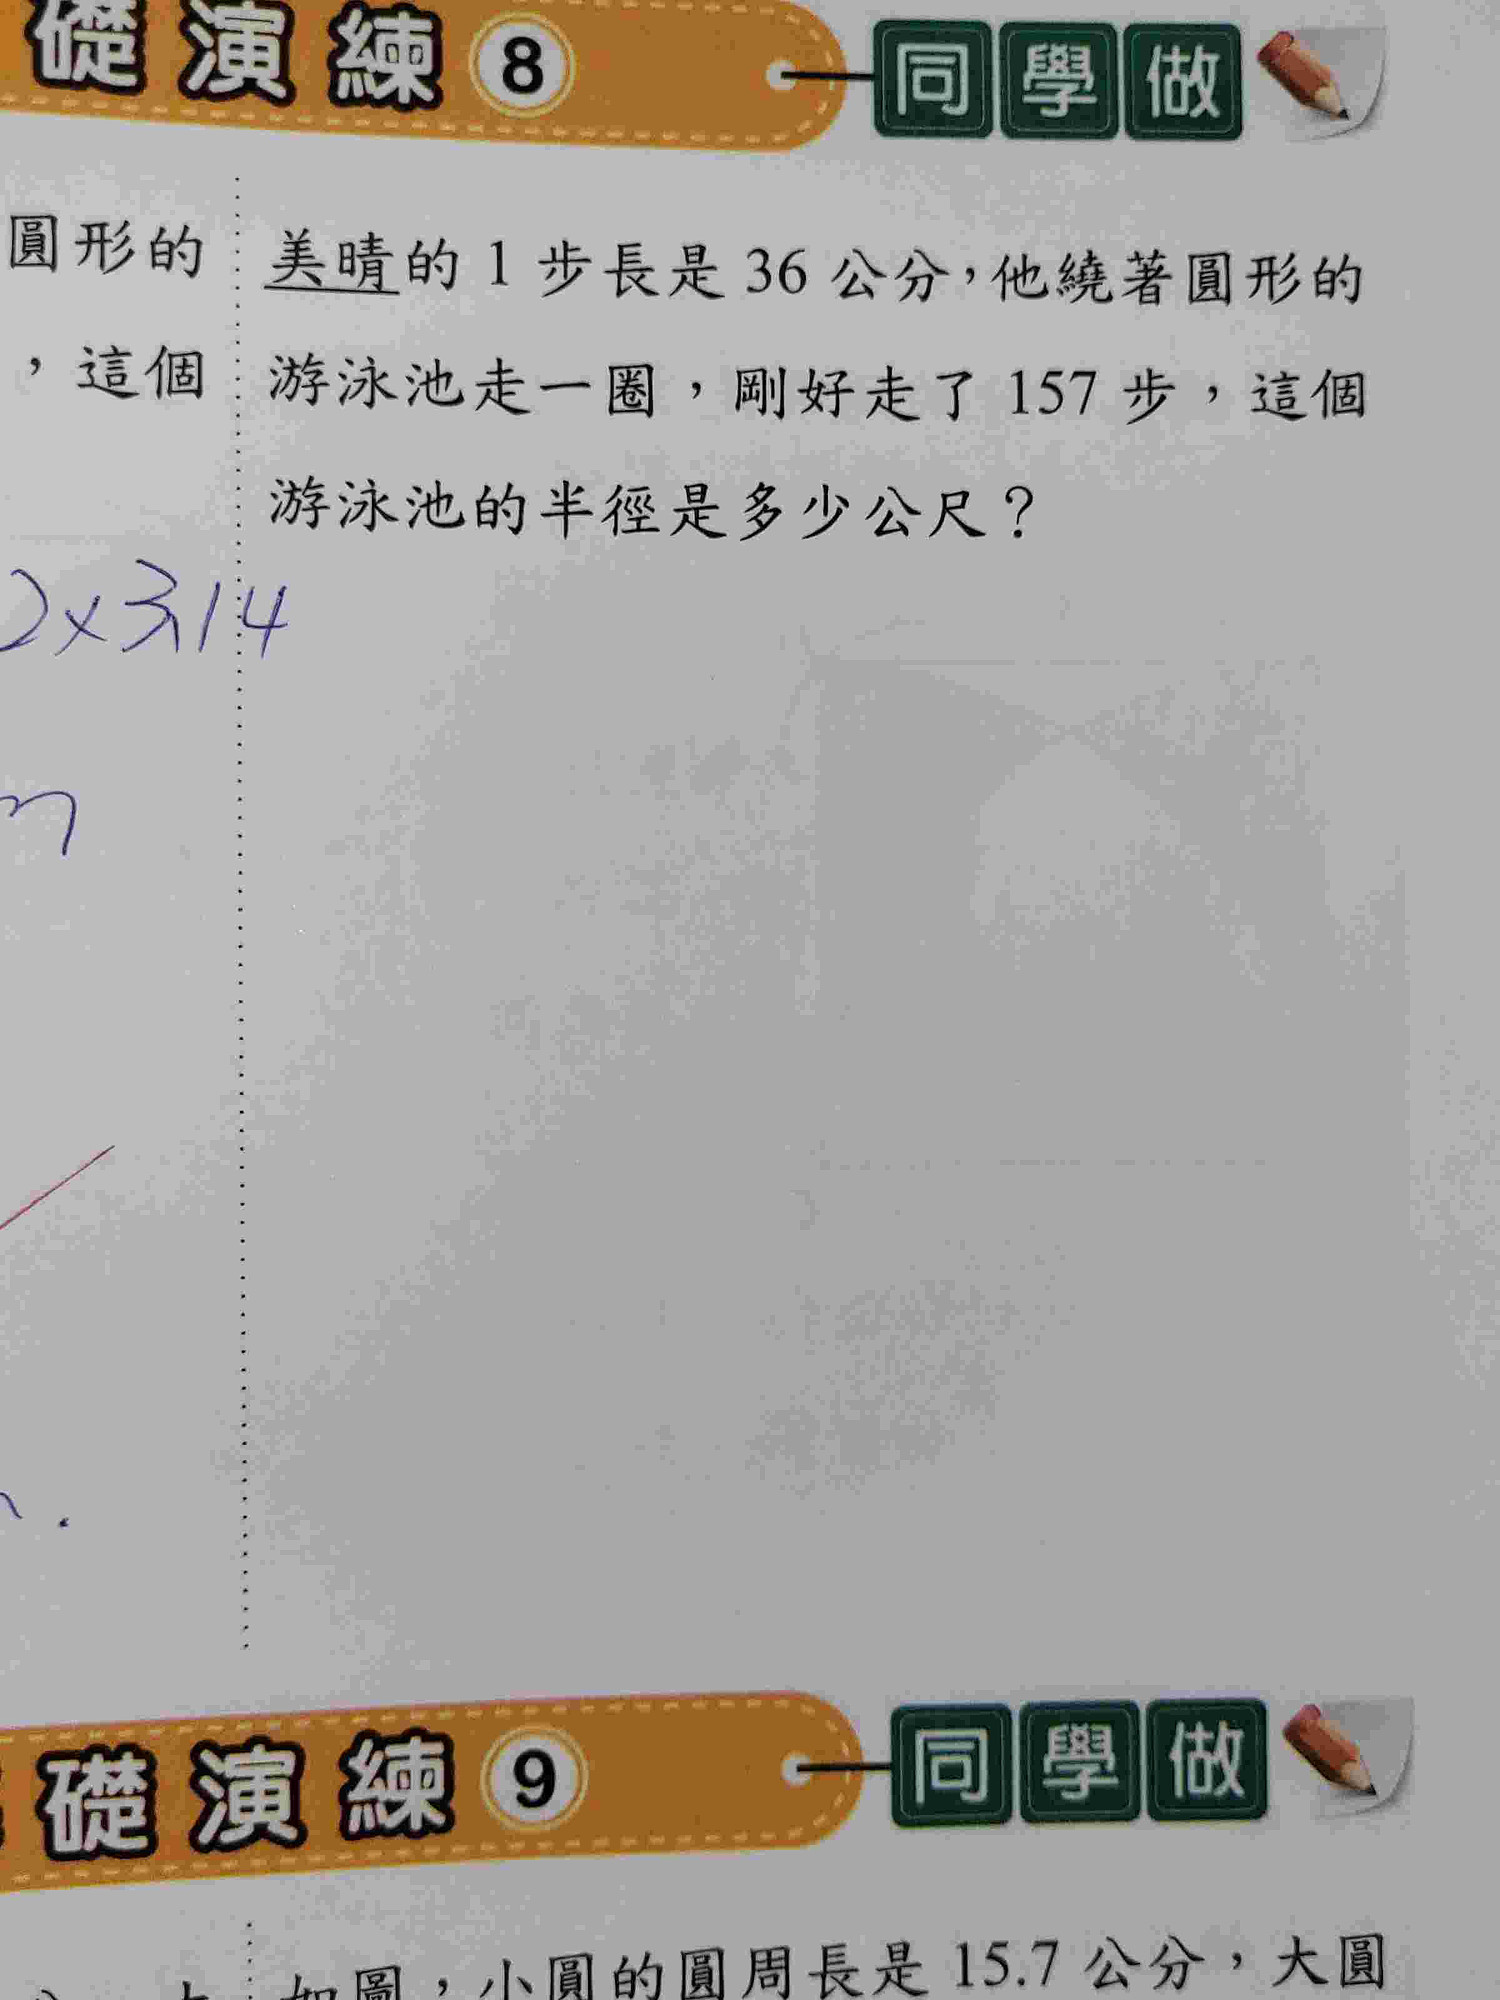 礎演練8 同學做
圓形的
，這個
美晴的 1 步長是 36 公分，他繞著圓形的
游泳池走一圈，剛好走了 157 步，這個
游泳池的半徑是多少公尺？
2×3.14
礎演練9 同學做
如圖，小圓的圓周長是 15.7 公分，大圓